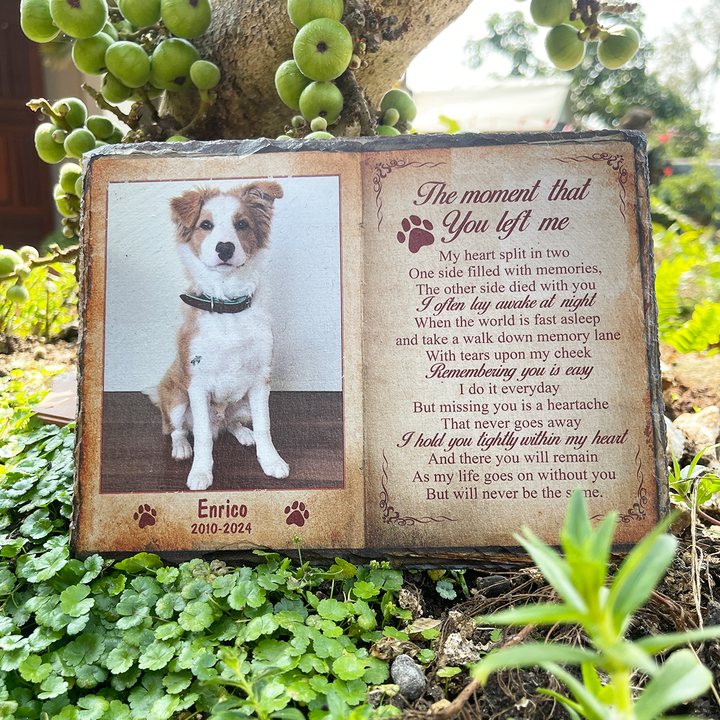 The moment that
You left me
My heart split in two
One side filled with memories,
The other side died with you
I often lay awake at night
When the world is fast asleep
and take a walk down memory lane
With tears upon my cheek
Remembering you is easy
I do it everyday
But missing you is a heartache
That never goes away
I hold you tightly within my heart
And there you will remain
As my life goes on without you
But will never be the same.
Enrico
2010-2024